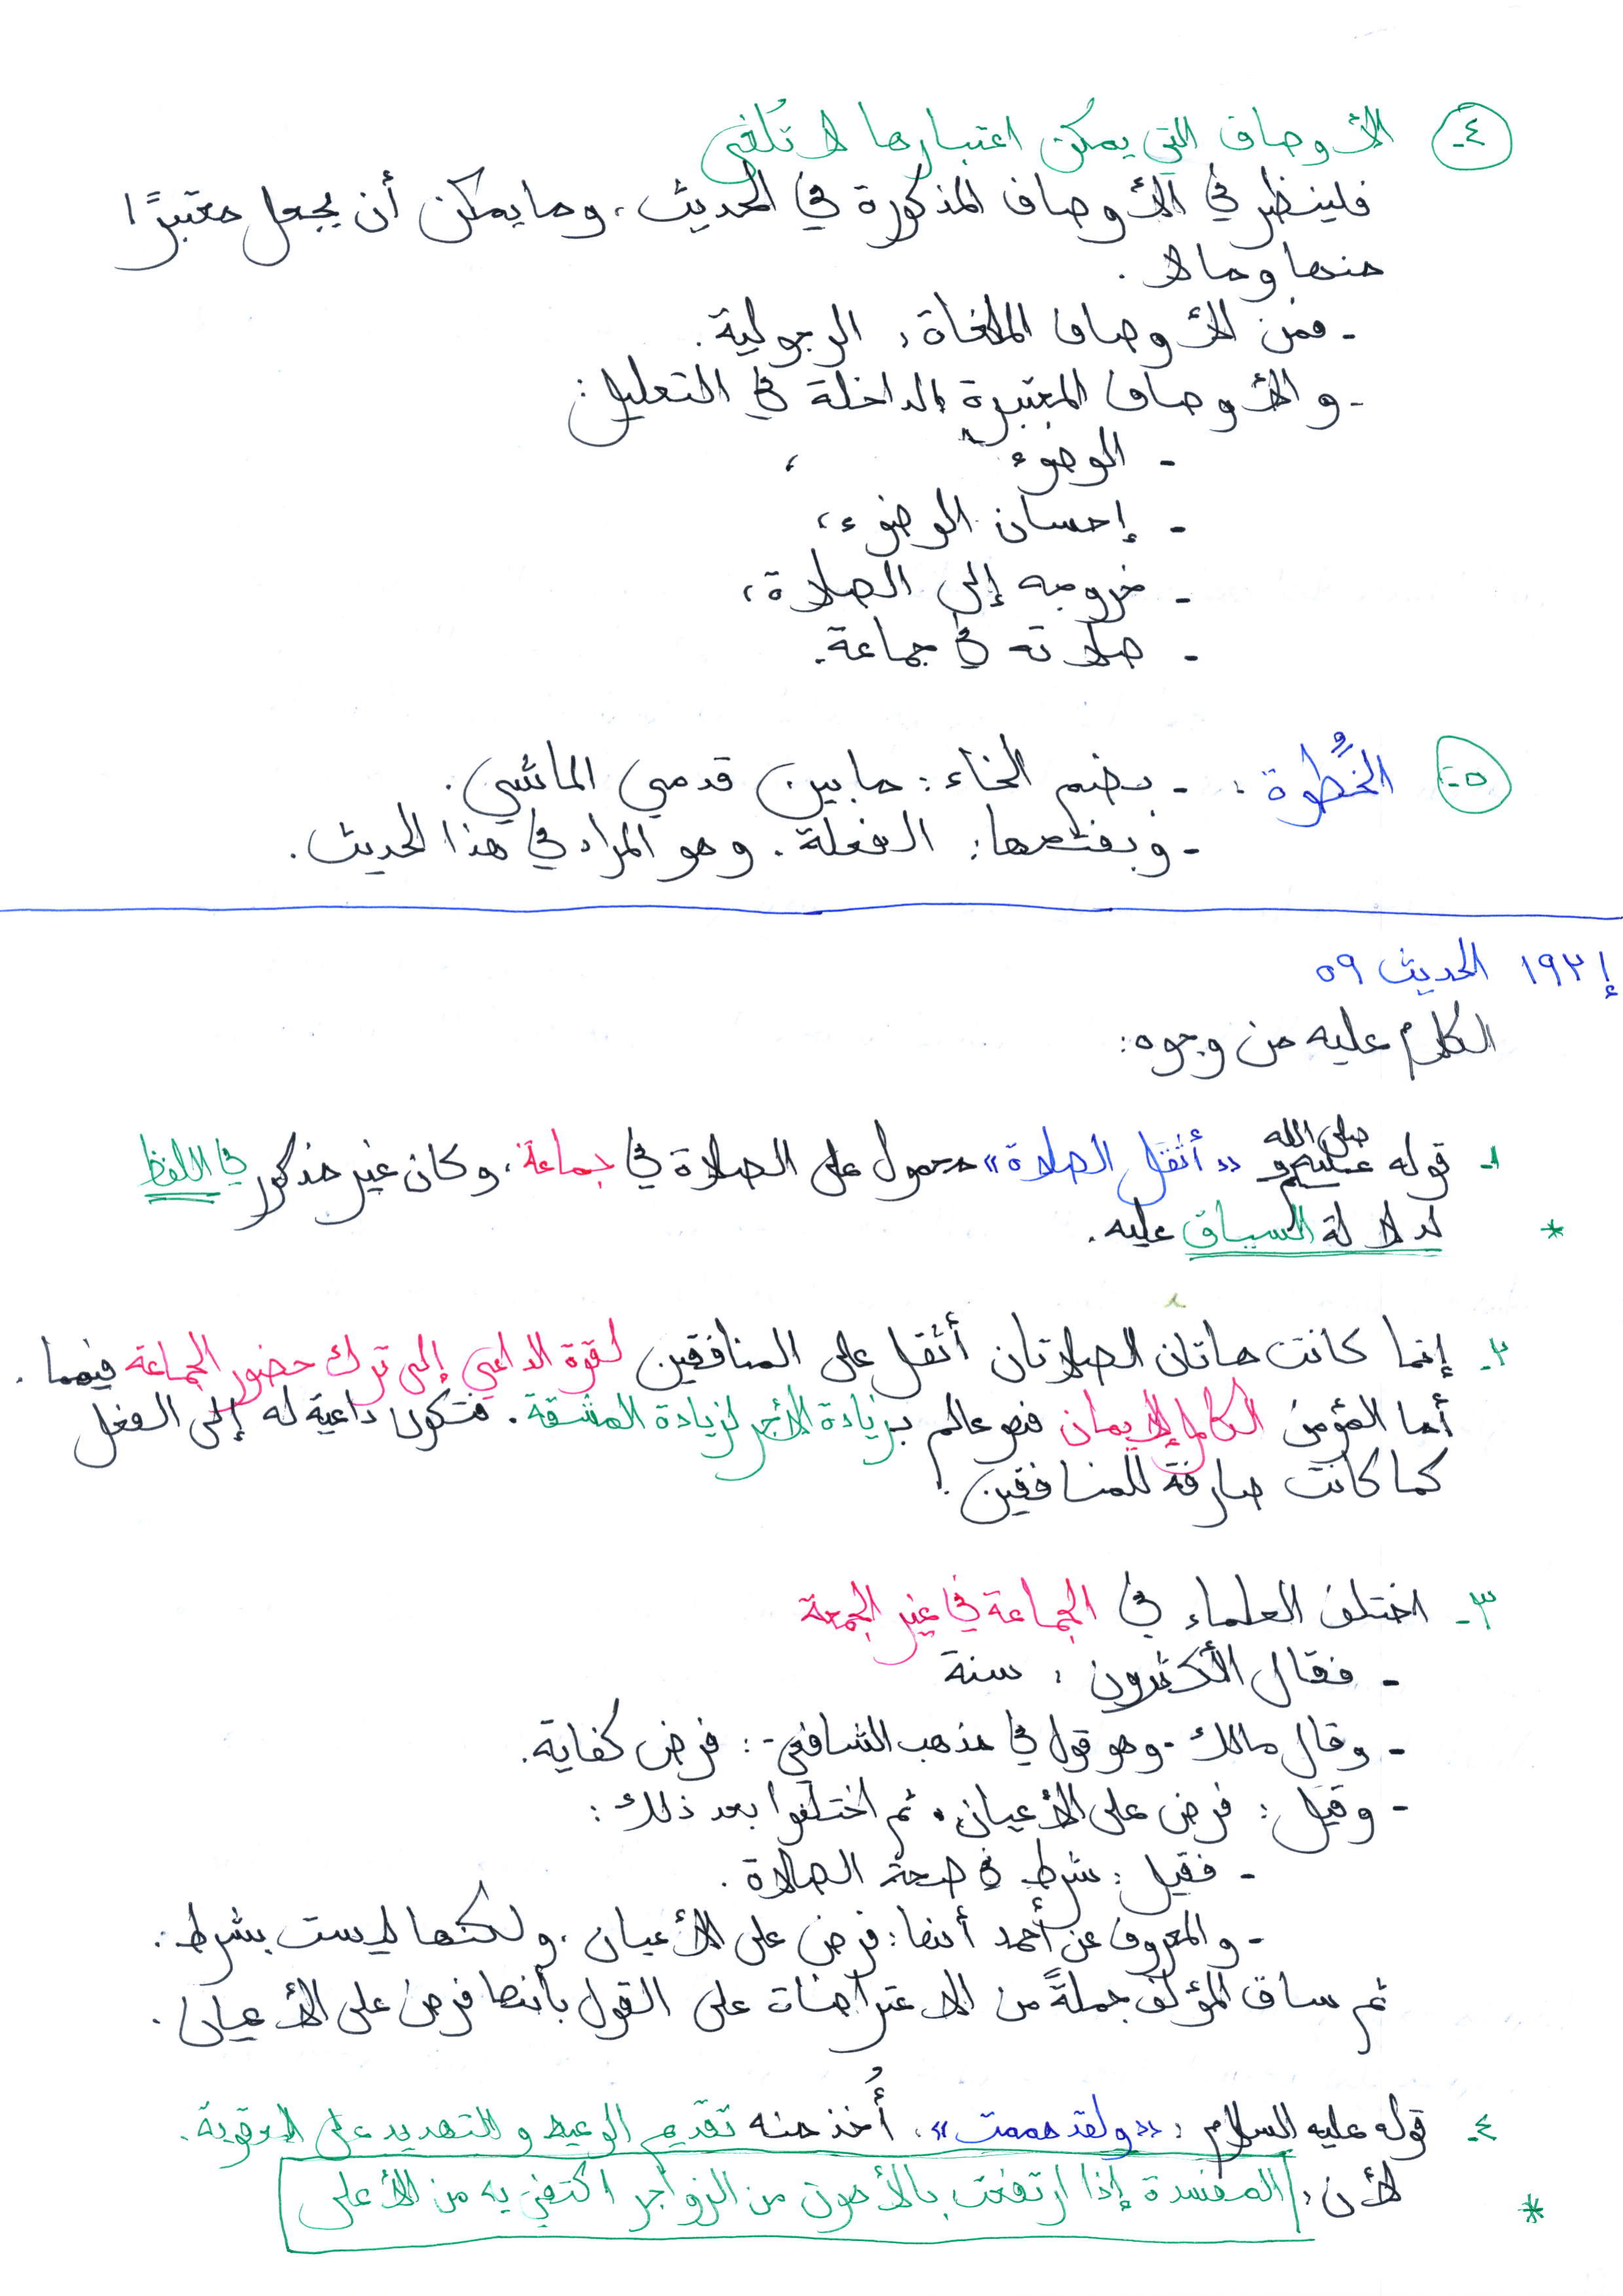 ٤- الأوصاف التي يمكن اعتبارها لا تُلغى
فلينظر في الأوصاف المذكورة في الحديث، وما يمكن أن يجعل معتبرًا
منها وما لا.
- فمن الأوصاف الملغاة: الرجولية.
- والأوصاف المعتبرة الداخلة في التعليل:
- الوضوء،
- إحسان الوضوء،
- خروجه إلى الصلاة،
- صلاته في جماعة.
٥- الخُطوة: - بضم الخاء: ما بين قدمي الماشي.
- وبفتحها: الفعلة. وهو المراد في هذا الحديث.
إ ١٩٢١ الحديث ٥٩
الكلام عليه من وجوه:
١- قوله صلى الله عليه وسلم «أثقل الصلاة» محمول على الصلاة في جماعة، وكان غير مذكور في اللفظ
* لدلالة السياق عليه.
٢- إنما كانت هاتان الصلاتان أثقل على المنافقين لقوة الداعي إلى ترك حضور الجماعة فيهما.
أما المؤمن الكامل الإيمان فهو عالم بزيادة الأجر لزيادة المشقة. فتكون داعية له إلى الفعل
كما كانت صارفة للمنافقين.
٣- اختلف العلماء في الجماعة في غير الجمعة
- فقال الأكثرون: سنة
- وقال مالك - وهو قول في مذهب الشافعي -: فرض كفاية.
- وقيل: فرض على الأعيان. ثم اختلفوا بعد ذلك:
- فقيل: شرط في صحة الصلاة.
- والمعروف عن أحمد أنها: فرض على الأعيان، ولكنها ليست بشرط.
ثم ساق المؤلف جملةً من الاعتراضات على القول بأنها فرض على الأعيان.
٤- قوله عليه السلام: «ولقد هممت». أُخذ منه تقديم الوعيد والتهديد على العقوبة.
* لأن: المفسدة إذا ارتفعت بالأهون من الزواجر اكتفي به من الأعلى